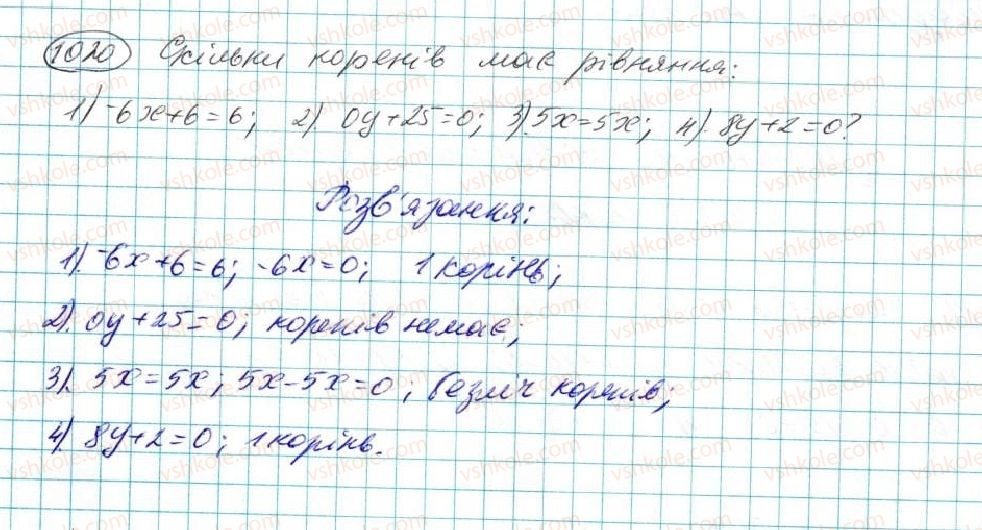 1020 Скільки коренів має рівняння:
1) -6x+6=6; 2) 0y+25=0; 3) 5x=5x; 4) 8y+2=0?
Розв'язання:
1). -6x+6=6; -6x=0; 1 корінь;
2). 0y+25=0; коренів немає;
3). 5x=5x; 5x-5x=0; безліч коренів;
4) 8y+2=0; 1 корінь.